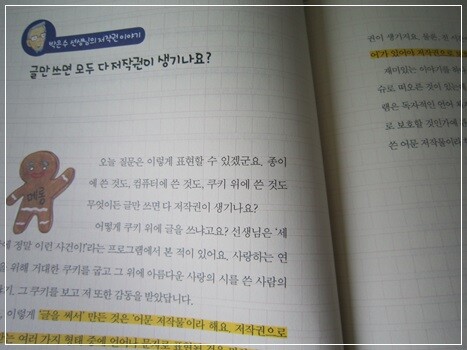 박은수 선생님의 저작권 이야기
글만 쓰면 모두 다 저작권이 생기나요?
메롱
오늘 질문은 이렇게 표현할 수 있겠군요. 종이
에 쓴 것도, 컴퓨터에 쓴 것도, 쿠키 위에 쓴 것도
무엇이든 글만 쓰면 다 저작권이 생기나요?
어떻게 쿠키 위에 글을 쓰냐고요? 선생님은 '세
에 정말 이런 사건이!'라는 프로그램에서 본 적이 있어요. 사랑하는 연
을 위해 거대한 쿠키를 굽고 그 위에 아름다운 사랑의 시를 쓴 사람의
그 쿠키를 보고 저 또한 감동을 받았답니다.
이렇게 '글을 써서' 만든 것은 '어문 저작물'이라 해요. 저작권으로
여러 가지 형태 중에 언어나 문자로 표현된 것을
권이 생기지요. 물론,
이'가 있어야 저작권으로
재미있는 이야기를
슈로 떠오른 것이 있는데
램은 독자적인 연애
로 보호할 것인가에
쓴 어문 저작물이라